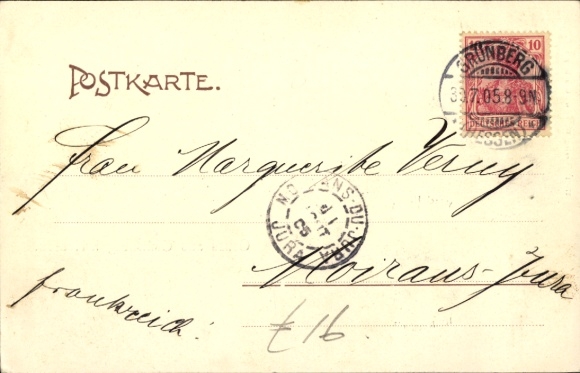 POSTKARTE.
10 10
GRÜNBERG
7.05.8-9N.
HESSEN
Frau Marguerite Verny
JURA
05
Moirans-Jura
Frankreich.
£16